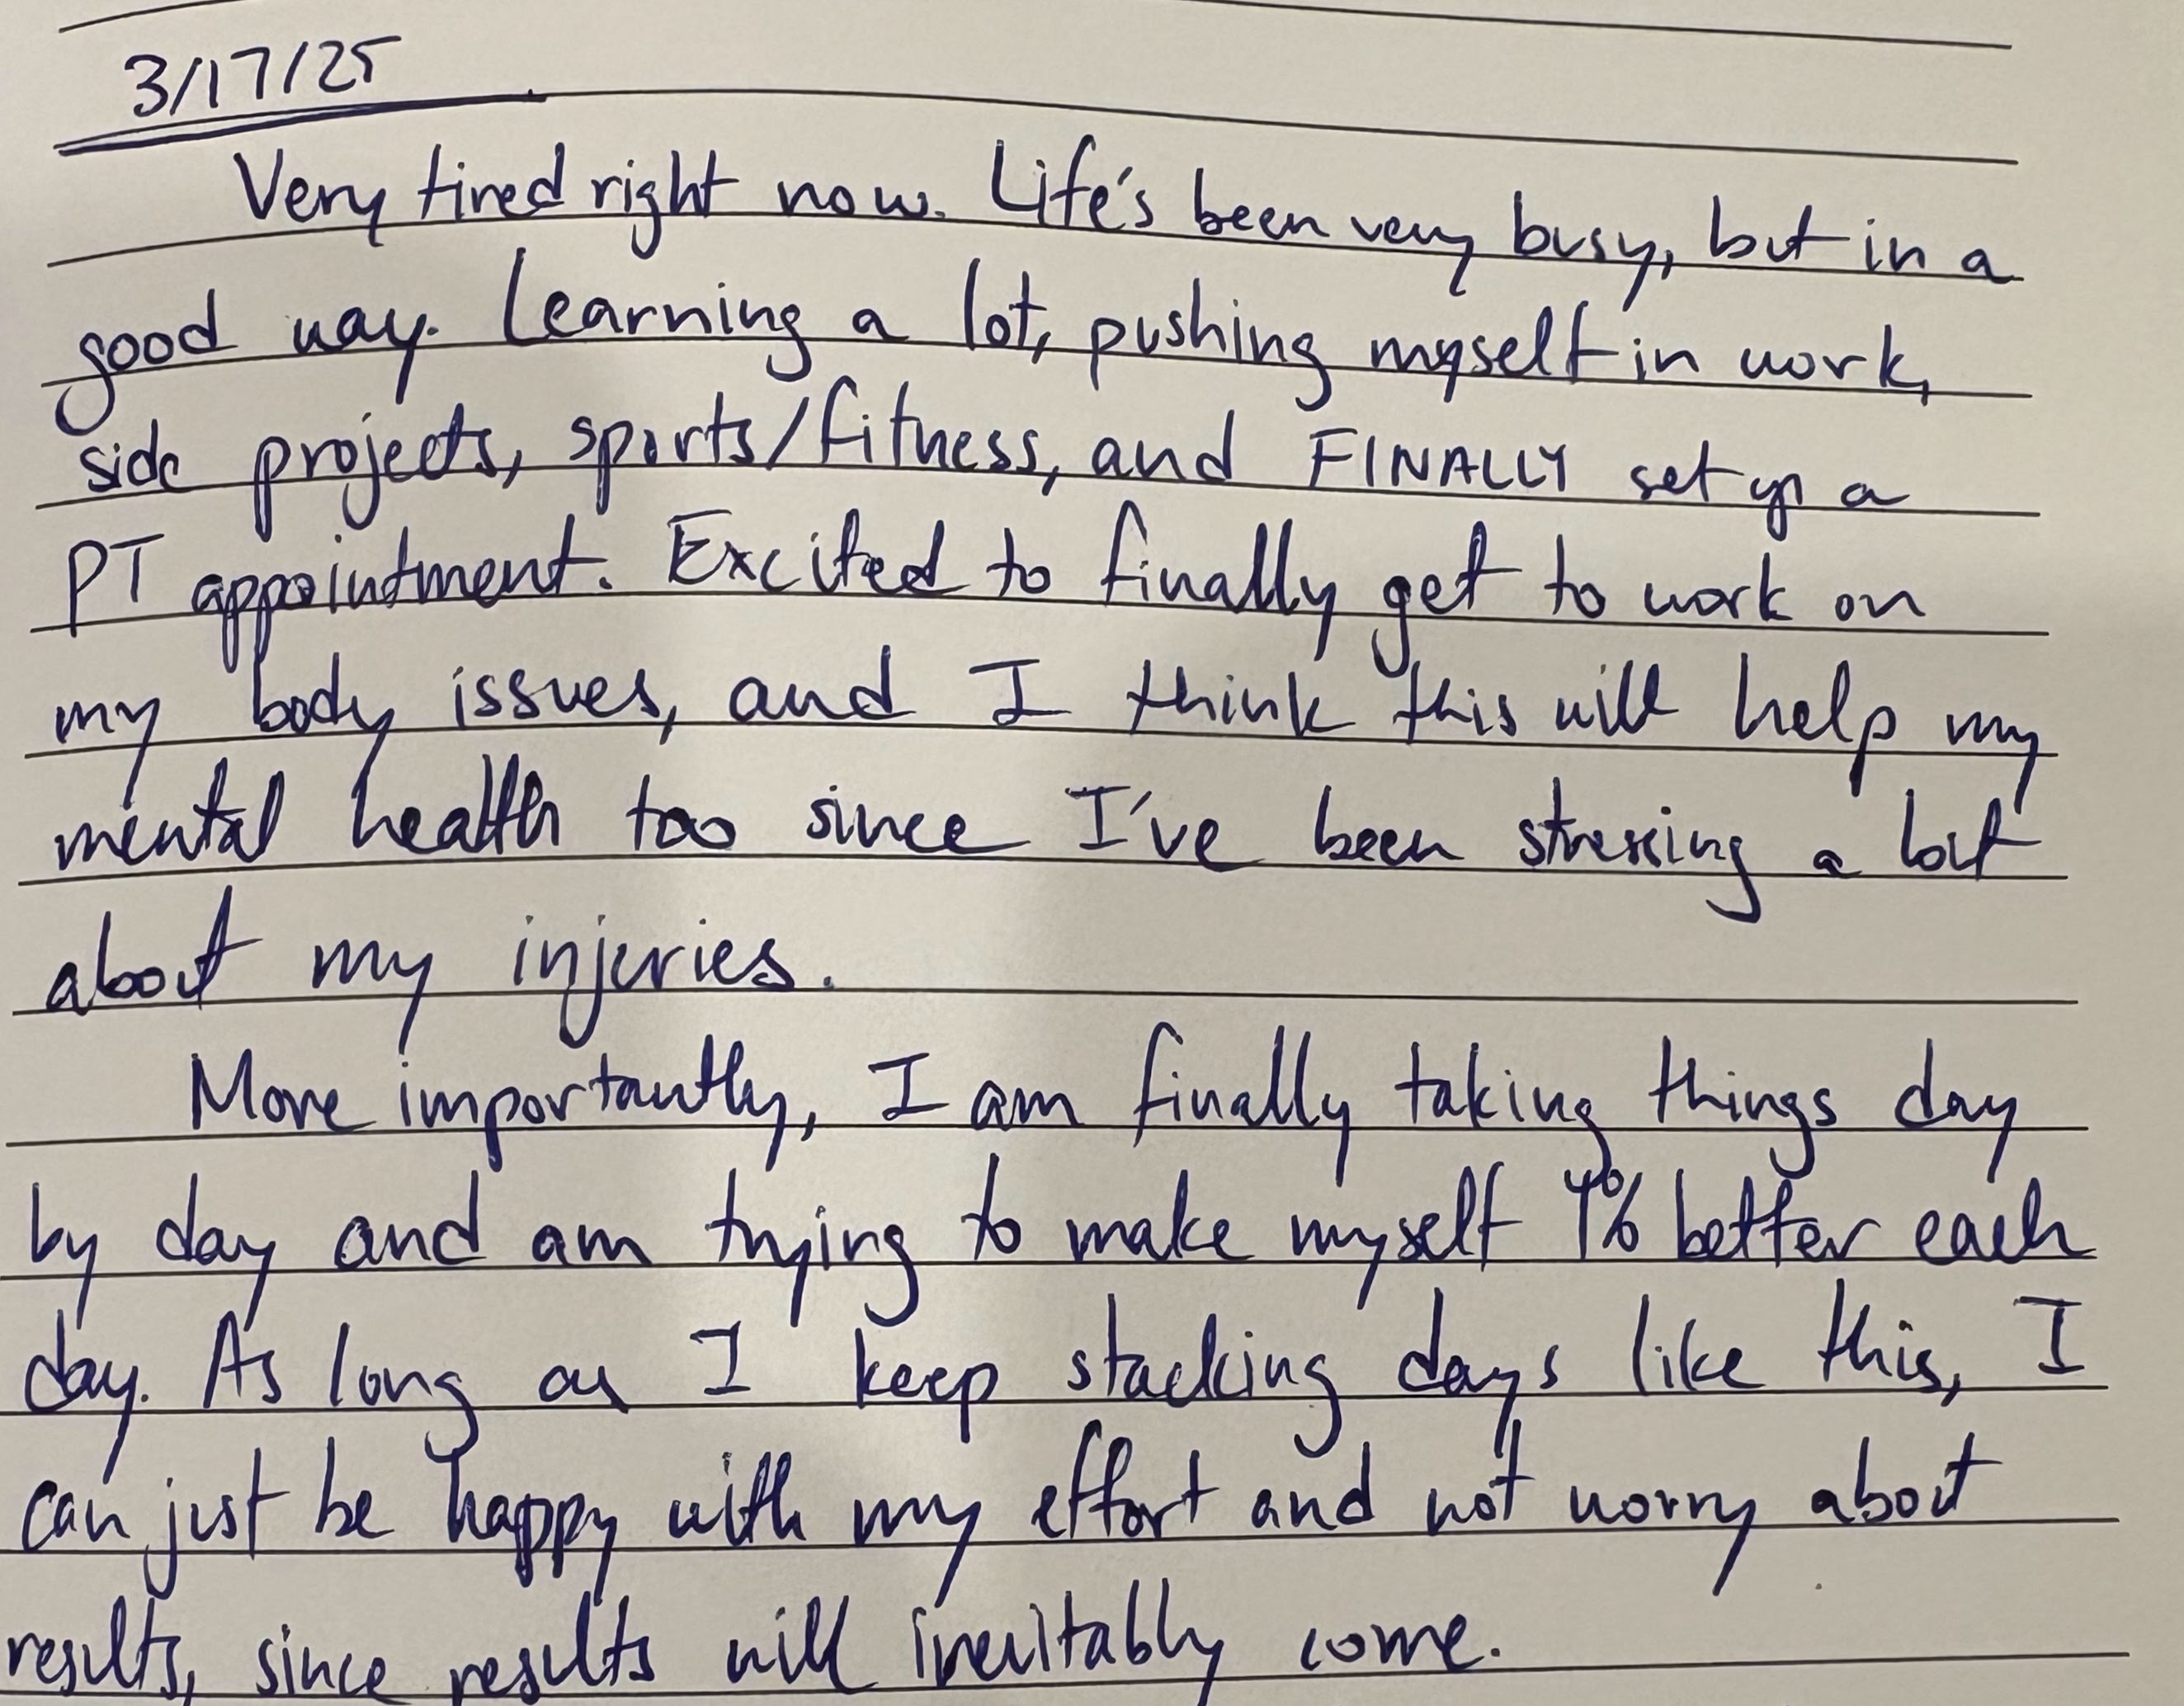 3/17/25
Very tired right now. Life's been very busy, but in a
good way. Learning a lot, pushing myself in work,
side projects, sports/fitness, and FINALLY set up a
PT appointment. Excited to finally get to work on
my body issues, and I think this will help my
mental health too since I've been stressing a lot
about my injuries.
More importantly, I am finally taking things day
by day and am trying to make myself 1% better each
day. As long as I keep stacking days like this, I
can just be happy with my effort and not worry about
results, since results will inevitably come.